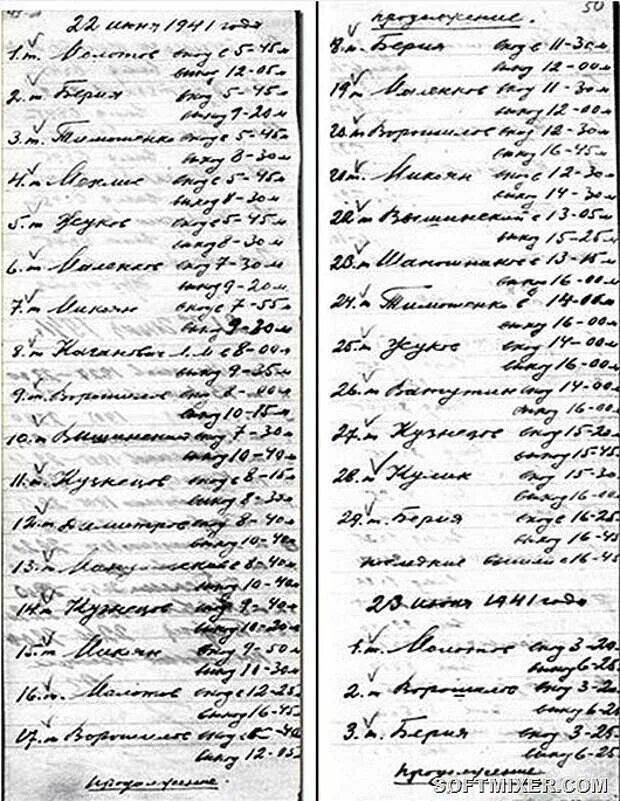 22 июня 1941 года
1. т. Молотов вход в 5-45 м
выход 12-05 м
2. т. Берия вход 5-45 м
выход 9-20 м
3. т. Тимошенко вход в 5-45 м
выход 8-30 м
4. т. Мехлис вход в 5-45 м
выход 8-30 м
5. т. Жуков вход в 5-45 м
выход 8-30 м
6. т. Маленков вход 7-30 м
выход 9-20 м
7. т. Микоян вход в 7-55 м
выход 9-30 м
8. т. Каганович Л. М в 8-00 м
выход 9-35 м
9. т. Ворошилов вход 8-00 м
выход 10-15 м
10. т Вышинский вход 7-30 м
выход 10-40 м
11. т. Кузнецов вход в 8-15 м
выход 8-30 м
12. т. Димитров вход 8-40 м
выход 10-40 м
13. т. в 8-40 м
выход 10-40 м
14. т. Кузнецов вход 9-40 м
выход 10-20 м
15. т. Микоян вход 9-50 м
выход 10-30 м
16. т. Молотов вход в 12-25 м
выход 16-45 м
17. т Ворошилов вход в
выход 12-05
продолжение.
50
продолжение.
8. т. Берия вход в 11-30 м
выход 12-00 м
19. т Маленков вход 11-30 м
выход 12-00 м
20. т Ворошилов вход 12-30 м
выход 16-45 м
т. Микоян вход в 12-30 м
выход 14-30 м
22. т Вышинский в 13-05 м
выход 15-25 м
23. т Шапошников в 13-15 м
выход 16-00 м
24. т. Тимошенко в 14-00 м
выход 16-00 м
25. т Жуков вход 14-00 м
выход 16-00 м
26. т Ватутин вход 14-00 м
выход 16-00 м
27. т Кузнецов вход 15-20 м
выход 15-45
28. т. Кулик вход 15-30 м
выход 16-00 м
29. т. Берия вход в 16-25
выход 16-45
последние вышли в 16-45
23 июня 1941 года
1. т. Молотов вход 3-20
выход 6-25
2. т Ворошилов вход 3-2
выход 6-2
3. т. Берия вход 3-25
выход 6-25
продолжение
SOFTMIXER.COM